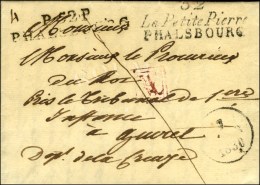 P.52.P
PHALSBOURG
52
La Petite Pierre
PHALSBOURG
Monsieur
Monsieur le Procureur
du Roi
Près le Tribunal de 1ère
Instance
à Guéret
Dépt de la Creuze
1830